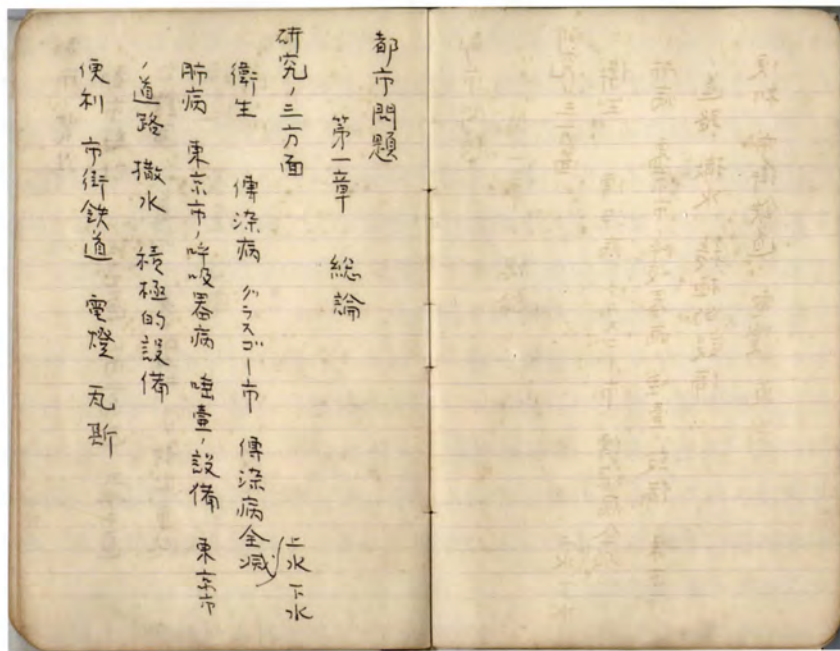 都市問題
第一章　総論
研究ノ三方面
衛生　傳染病　グラスゴー市　傳染病全減
上水下水
肺病　東京市ノ呼吸器病　唾壷ノ設備　東京市
ノ道路　撒水　積極的設備
便利　市街鉄道　電燈　瓦斯